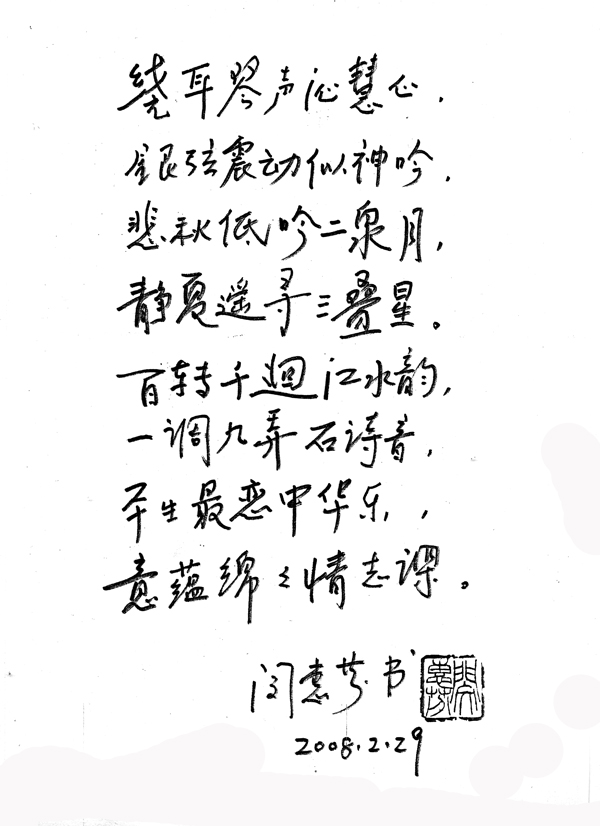 绕耳琴声沁慧心，
银弦震动似神吟，
悲秋低吟二泉月，
静夏遥寻三叠星。
百转千迴江水韵，
一调九弄石诗音，
平生最恋中华乐，
意蕴绵々情志深。
闵惠芬书
闵惠芬
2008.2.29